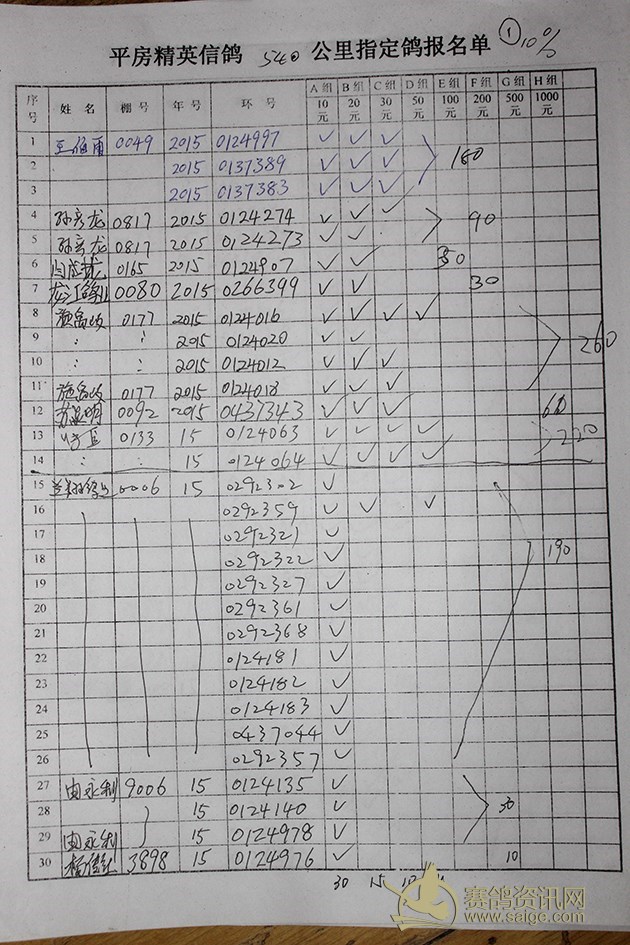 平房精英信鸽 540 公里指定鸽报名单 ① 10%
序号 姓名 棚号 年号 环号 A组 10元 B组 20元 C组 30元 D组 50元 E组 100元 F组 200元 G组 500元 H组 1000元
1 0049 2015 0124997 ✓ ✓ ✓
2 2015 0137389 ✓ ✓ ✓ 180
3 2015 0137383 ✓ ✓ ✓
4 孙彦龙 0817 2015 0124274 ✓ ✓ ✓ 90
5 孙彦龙 0817 2015 0124273 ✓ ✓
6 0165 2015 0124907 ✓ ✓ 30
7 0080 2015 0266399 ✓ ✓ 30
8 0177 2015 0124016 ✓ ✓ ✓ ✓
9 : : 2015 0124020 ✓ ✓ 260
10 : : 2015 0124012 ✓ ✓ ✓
11 0177 2015 0124018 ✓ ✓ ✓
12 0092 2015 0437343 ✓ ✓ ✓ 60
13 0133 15 0124063 ✓ ✓ ✓ ✓ 220
14 : : 15 0124064 ✓ ✓ ✓ ✓
15 0006 15 0292302 ✓
16 0292359 ✓ ✓ ✓
17 0292321 ✓
18 0292322 ✓ 190
19 0292327 ✓
20 0292361 ✓
21 0292368 ✓
22 0124181 ✓
23 0124182 ✓
24 0124183 ✓
25 0437044 ✓
26 0292357 ✓
27 由永利 9006 15 0124135 ✓
28 15 0124140 ✓ 30
29 由永利 15 0124978 ✓
30 3898 15 0124976 ✓ 10
30 15 10
赛鸽资讯网
www.saige.com